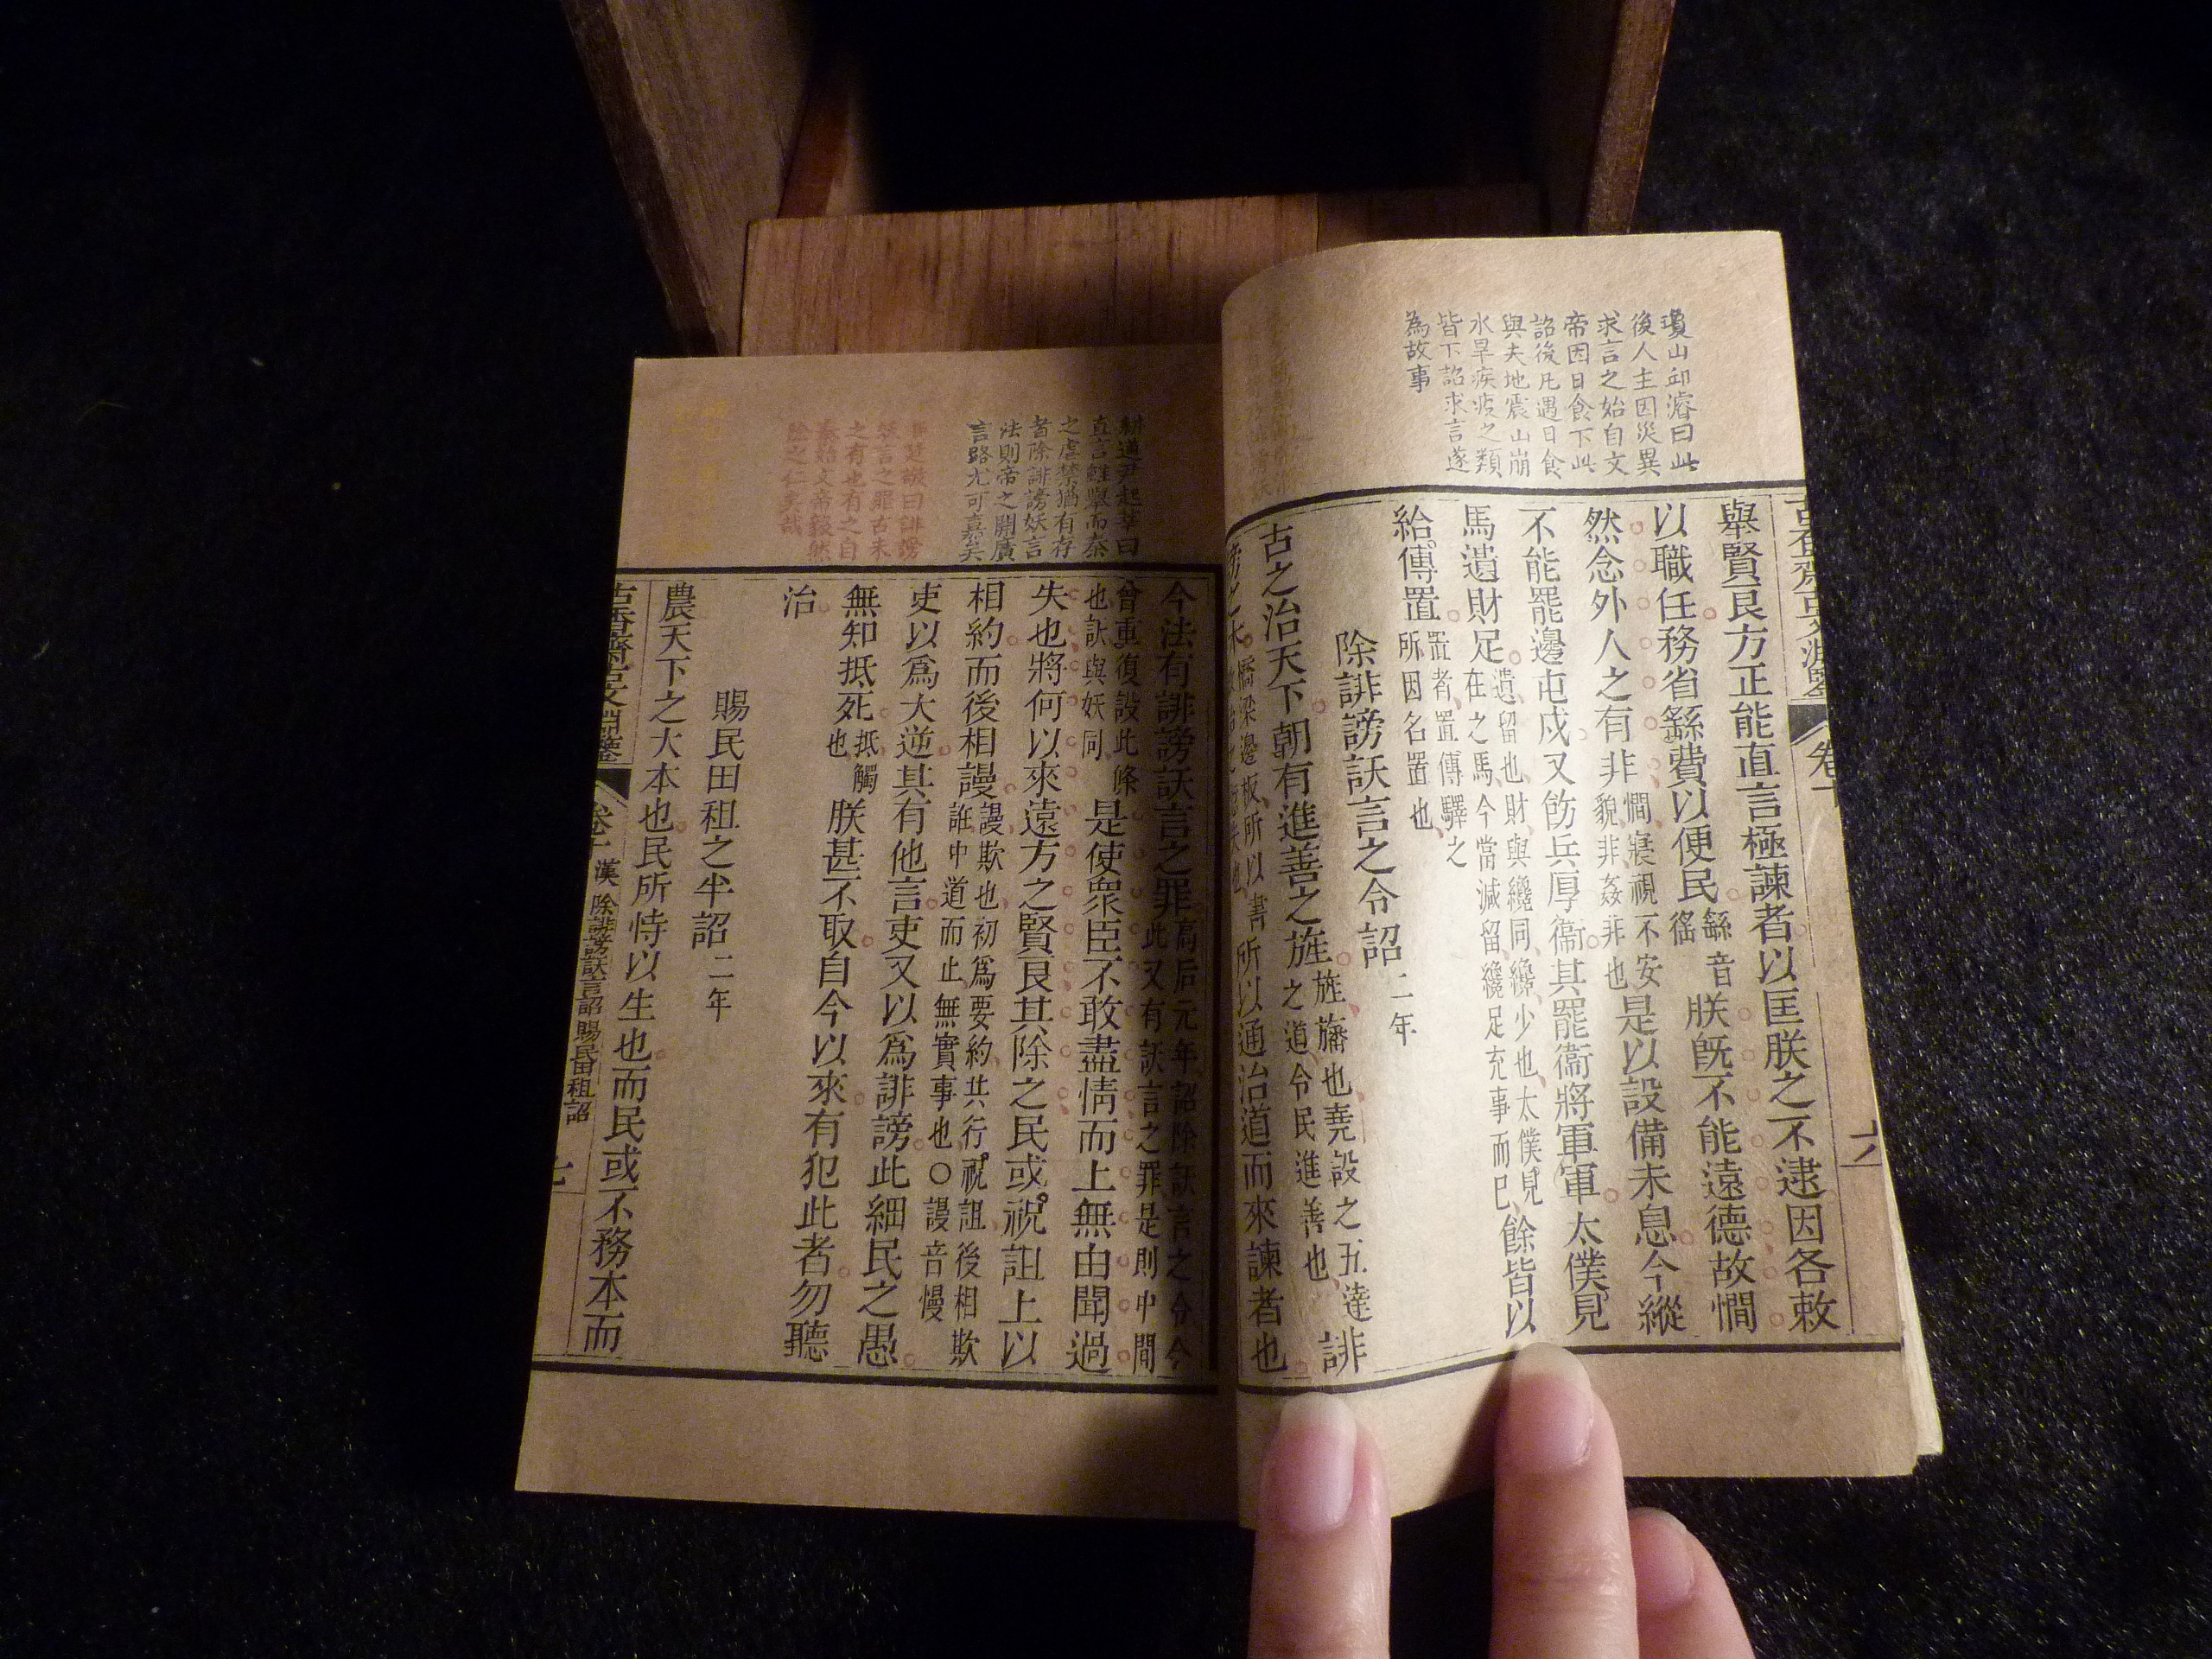 瓊山邱濬曰此
後人主因災異
求言之始自文
帝因日食下此
詔後凡遇日食
與夫地震山崩
水旱疾疫之類
皆下詔求言遂
為故事
舉賢良方正能直言極諫者以匡朕之不逮因各敕
以職任務省繇費以便民
繇音
徭
朕既不能遠德故憪
然念外人之有非
憪寢視不安
貌非姦非也
是以設備未息今縱
不能罷邊屯戍又飭兵厚衞其罷衞將軍軍太僕見
馬遺財足
遺留也財與纔同纔少也太僕見
在之馬今當減留纔足充事而已
餘皆以
給傳置
置者置傳驛之
所因名置也
除誹謗訞言之令詔二年
古之治天下朝有進善之旌
旌旛也堯設之五達
之道令民進善也
誹
橋梁邊板所以書
所以通治道而來諫者也
耕道尹起莘曰
直言雖舉而秦
之虐禁猶有存
者除誹謗妖言
法則帝之開廣
言路尤可嘉矣
曰誹謗
言之罪古未
之有也有之自
秦始文帝毅然
除之仁矣哉
今法有誹謗訞言之罪
高后元年詔除訞言之令今
此又有訞言之罪是則中間
曾重復設此條
也訞與妖同
是使衆臣不敢盡情而上無由聞過
失也將何以來遠方之賢良其除之民或祝詛上以
相約而後相謾
謾欺也初爲要約共行祝詛後相欺
誑中道而止無實事也○謾音慢
吏以爲大逆其有他言吏又以爲誹謗此細民之愚
無知抵死
抵觸
也
朕甚不取自今以來有犯此者勿聽
治
賜民田租之半詔二年
農天下之大本也民所恃以生也而民或不務本而
古香齋古文淵鑒 卷十 漢 除誹謗訞言詔 賜民田租詔 七